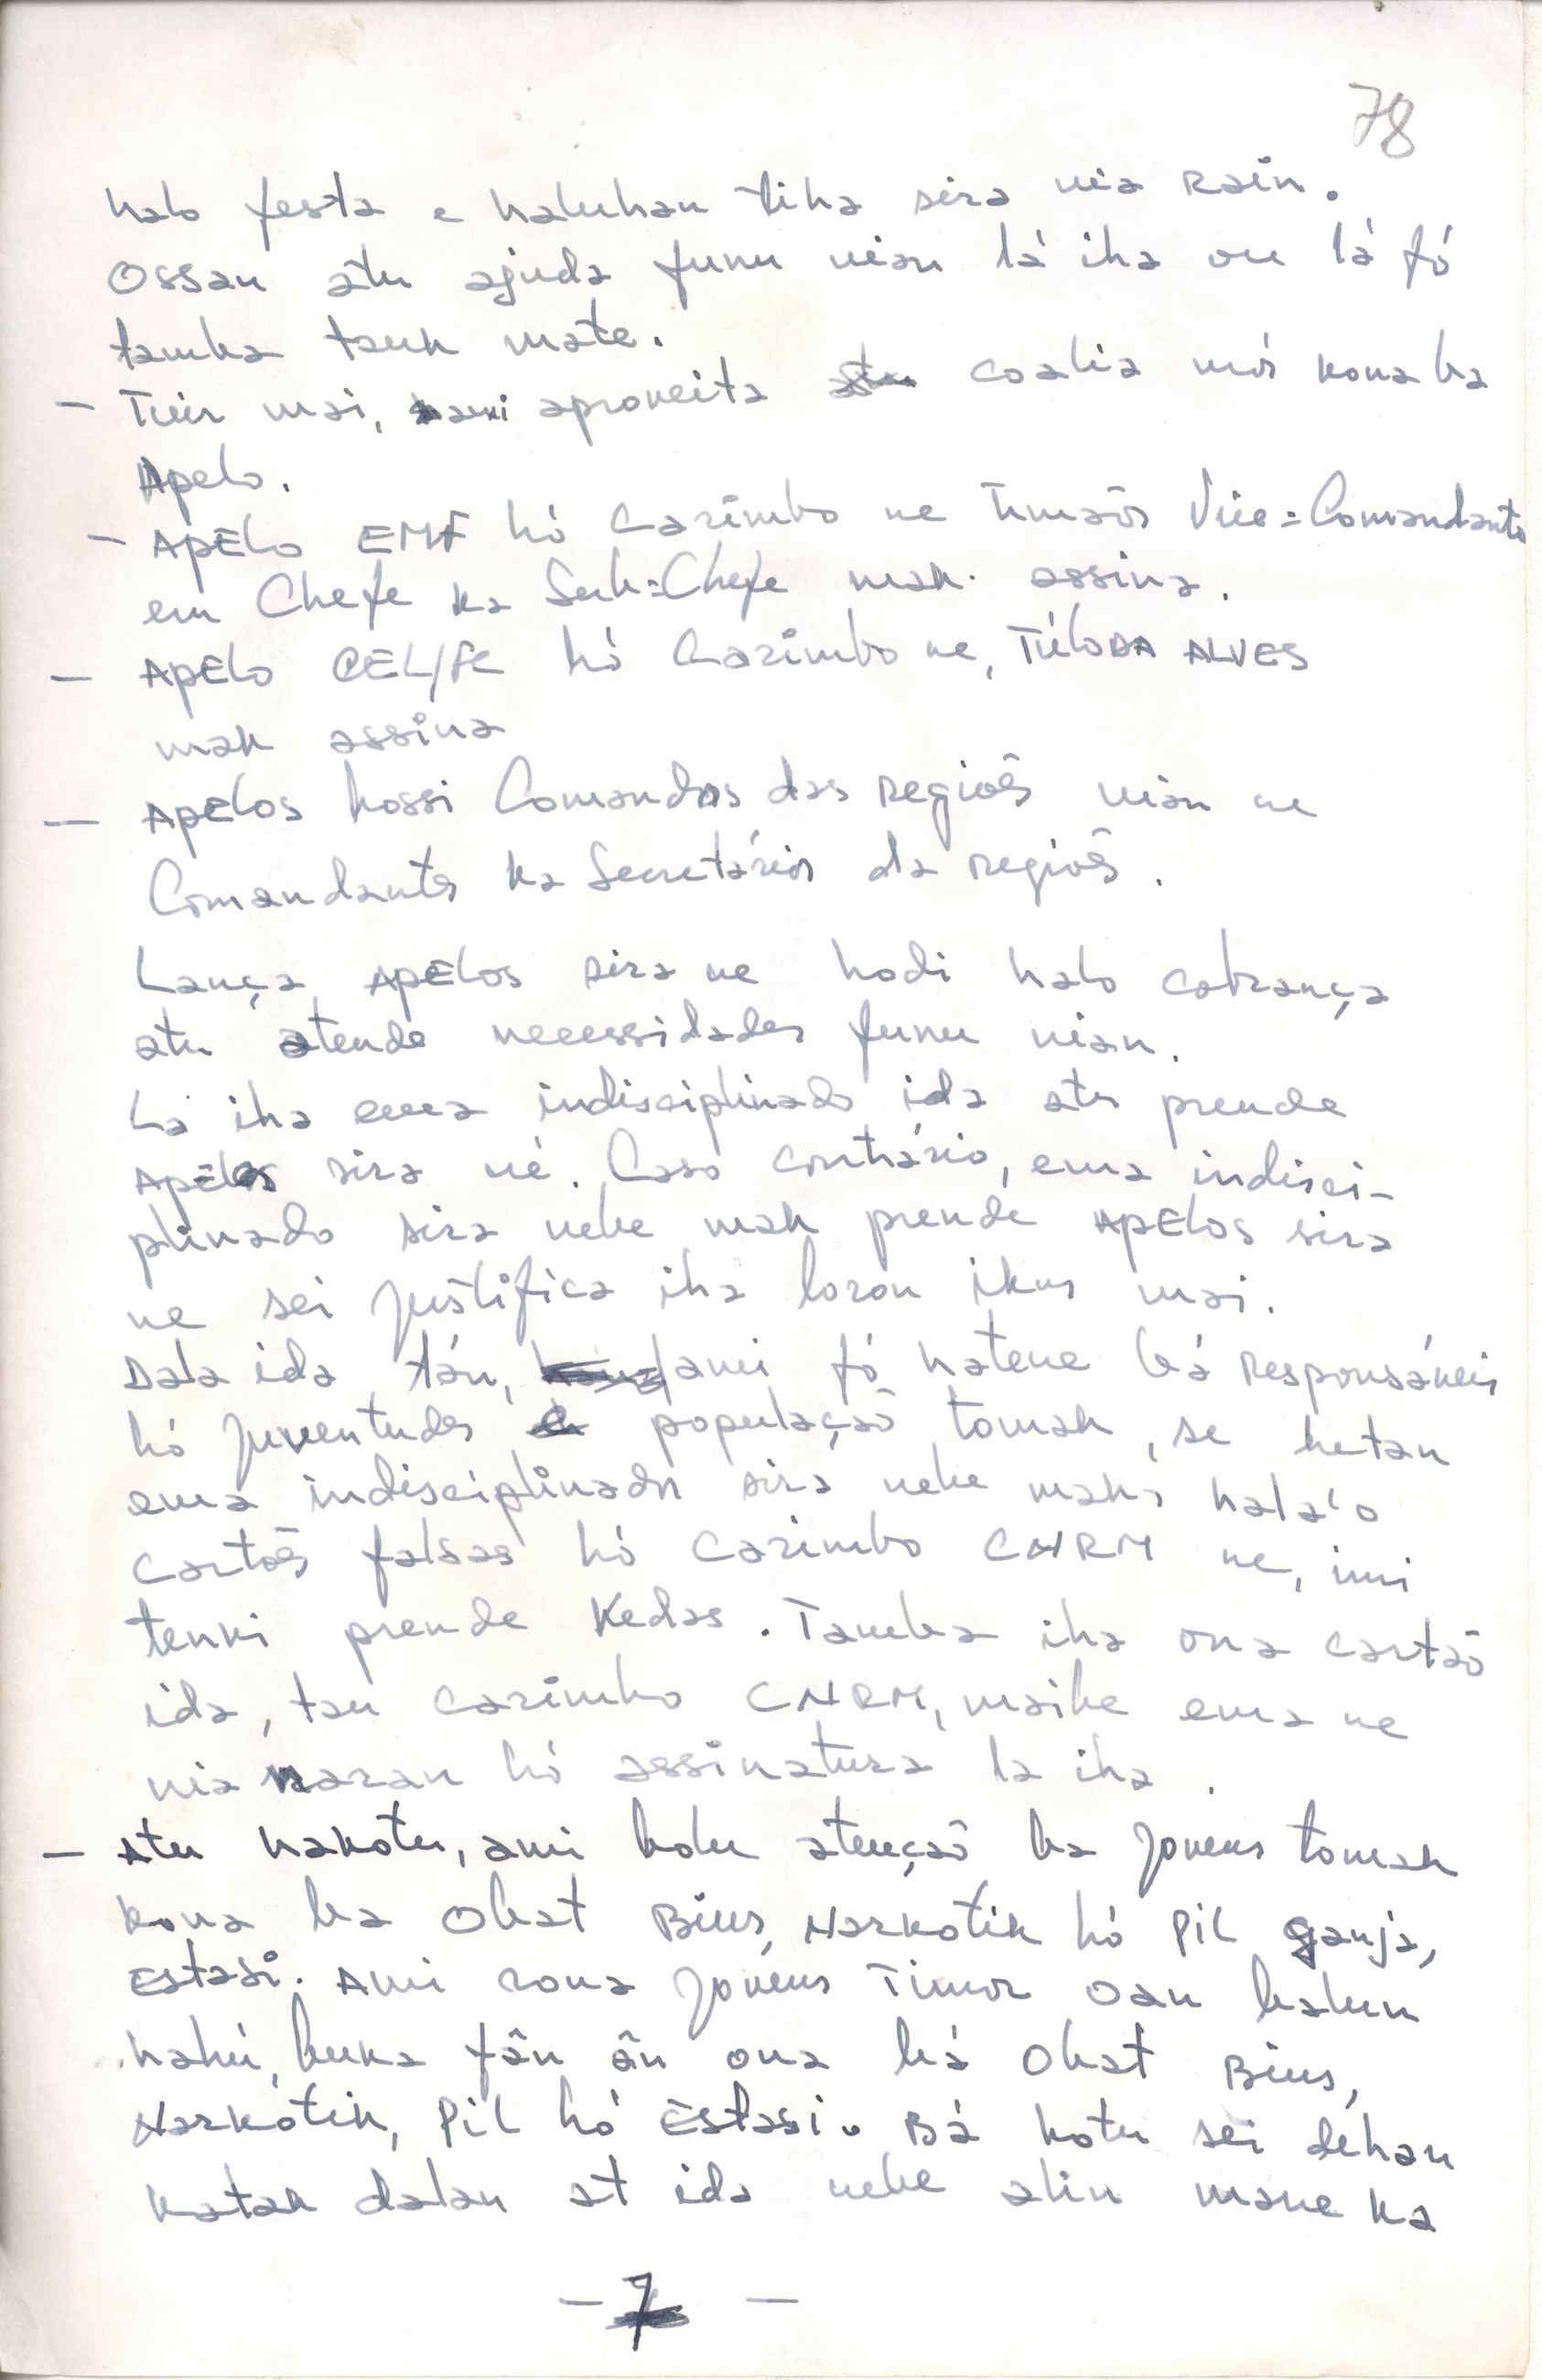 78
halo festa e haluhan tiha sira nia Rain.
Ossan atu ajuda funu nian lá iha ou lá fó
tamba tauk mate.
- Tuir mai, ami aproveita coalia mós kona ba
Apelo.
- APELO EMF hó Carimbo ne Timaōr Vice=Comandante
em Chefe ka Sub=Chefe mak assina.
- APELO CEL/FC hó Carimbo ne, TÚLODA ALVES
mak assina
- APELOS hossi Comandos das Regiōes nian ne
Comandantes ka Secretários da regiōes.
Lança APELOS sira ne hodi halo cobrança
atu atende necessidades funu nian.
Lá iha ema indisciplinado ida atu prende
APELOS sira né. Caso contrário, ema indisci-
plinado sira nebe mak prende APELOS sira
ne sei justifica iha loron ikus mai.
Dala ida tán, ami fó hatene bá Responsáveis
hó juventudes população tomak, se hetan
ema indisciplinados sira nebe mak hala'o
cartoēs falsas hó Carimbo CNRM ne, imi
tenki prende Kedas. Tamba iha ona cartaō
ida, tau carimbo CNRM, maibe ema ne
nia naran hó assinatura la iha.
- Atu hakotu, ami bolu atençaō ba jovens tomak
kona ba Obat Bius, Narkotik hó Pil ganja,
Estasi. Ami rona jovens Timor Oan balun
hahú, buka fān ān ona bá Obat Bius,
Narkotik, Pil hó Estasi. Bá hotu sei dehan
katak dalan at ida nebe alin mane ka
- 7 -